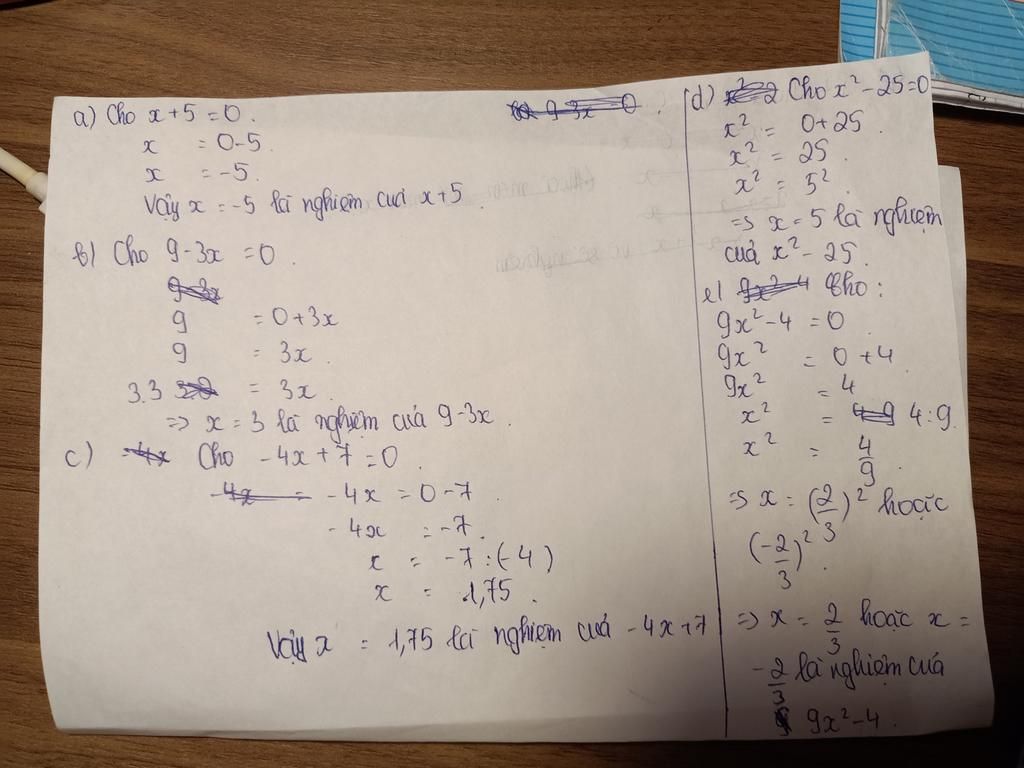 a) Cho x + 5 = 0.
x = 0-5.
x = -5.
Vậy x = -5 là nghiệm của x+5.
b) Cho 9-3x = 0.
9 = 0+3x
9 = 3x.
3.3 = 3x.
=> x = 3 là nghiệm của 9-3x.
c) Cho -4x + 7 = 0.
-4x = 0-7.
-4x = -7.
x = -7:(-4)
x = 1,75.
Vậy x = 1,75 là nghiệm của -4x+7
d) Cho x² - 25 = 0
x² = 0+25.
x² = 25.
x² = 5².
=> x = 5 là nghiệm
của x² - 25.
e) Cho:
9x² - 4 = 0.
9x² = 0 + 4.
9x² = 4
x² = 4:9.
x² = 4/9.
=> x = (2/3)² hoặc
(-2/3)².
=> x = 2/3 hoặc x =
-2/3 là nghiệm của
9x² - 4.